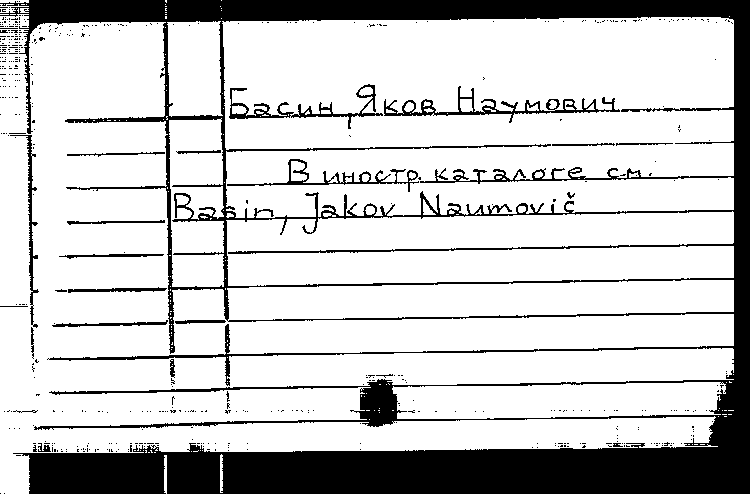 Басин, Яков Наумович
В иностр. каталоге см.
Basin, Jakov Naumovič